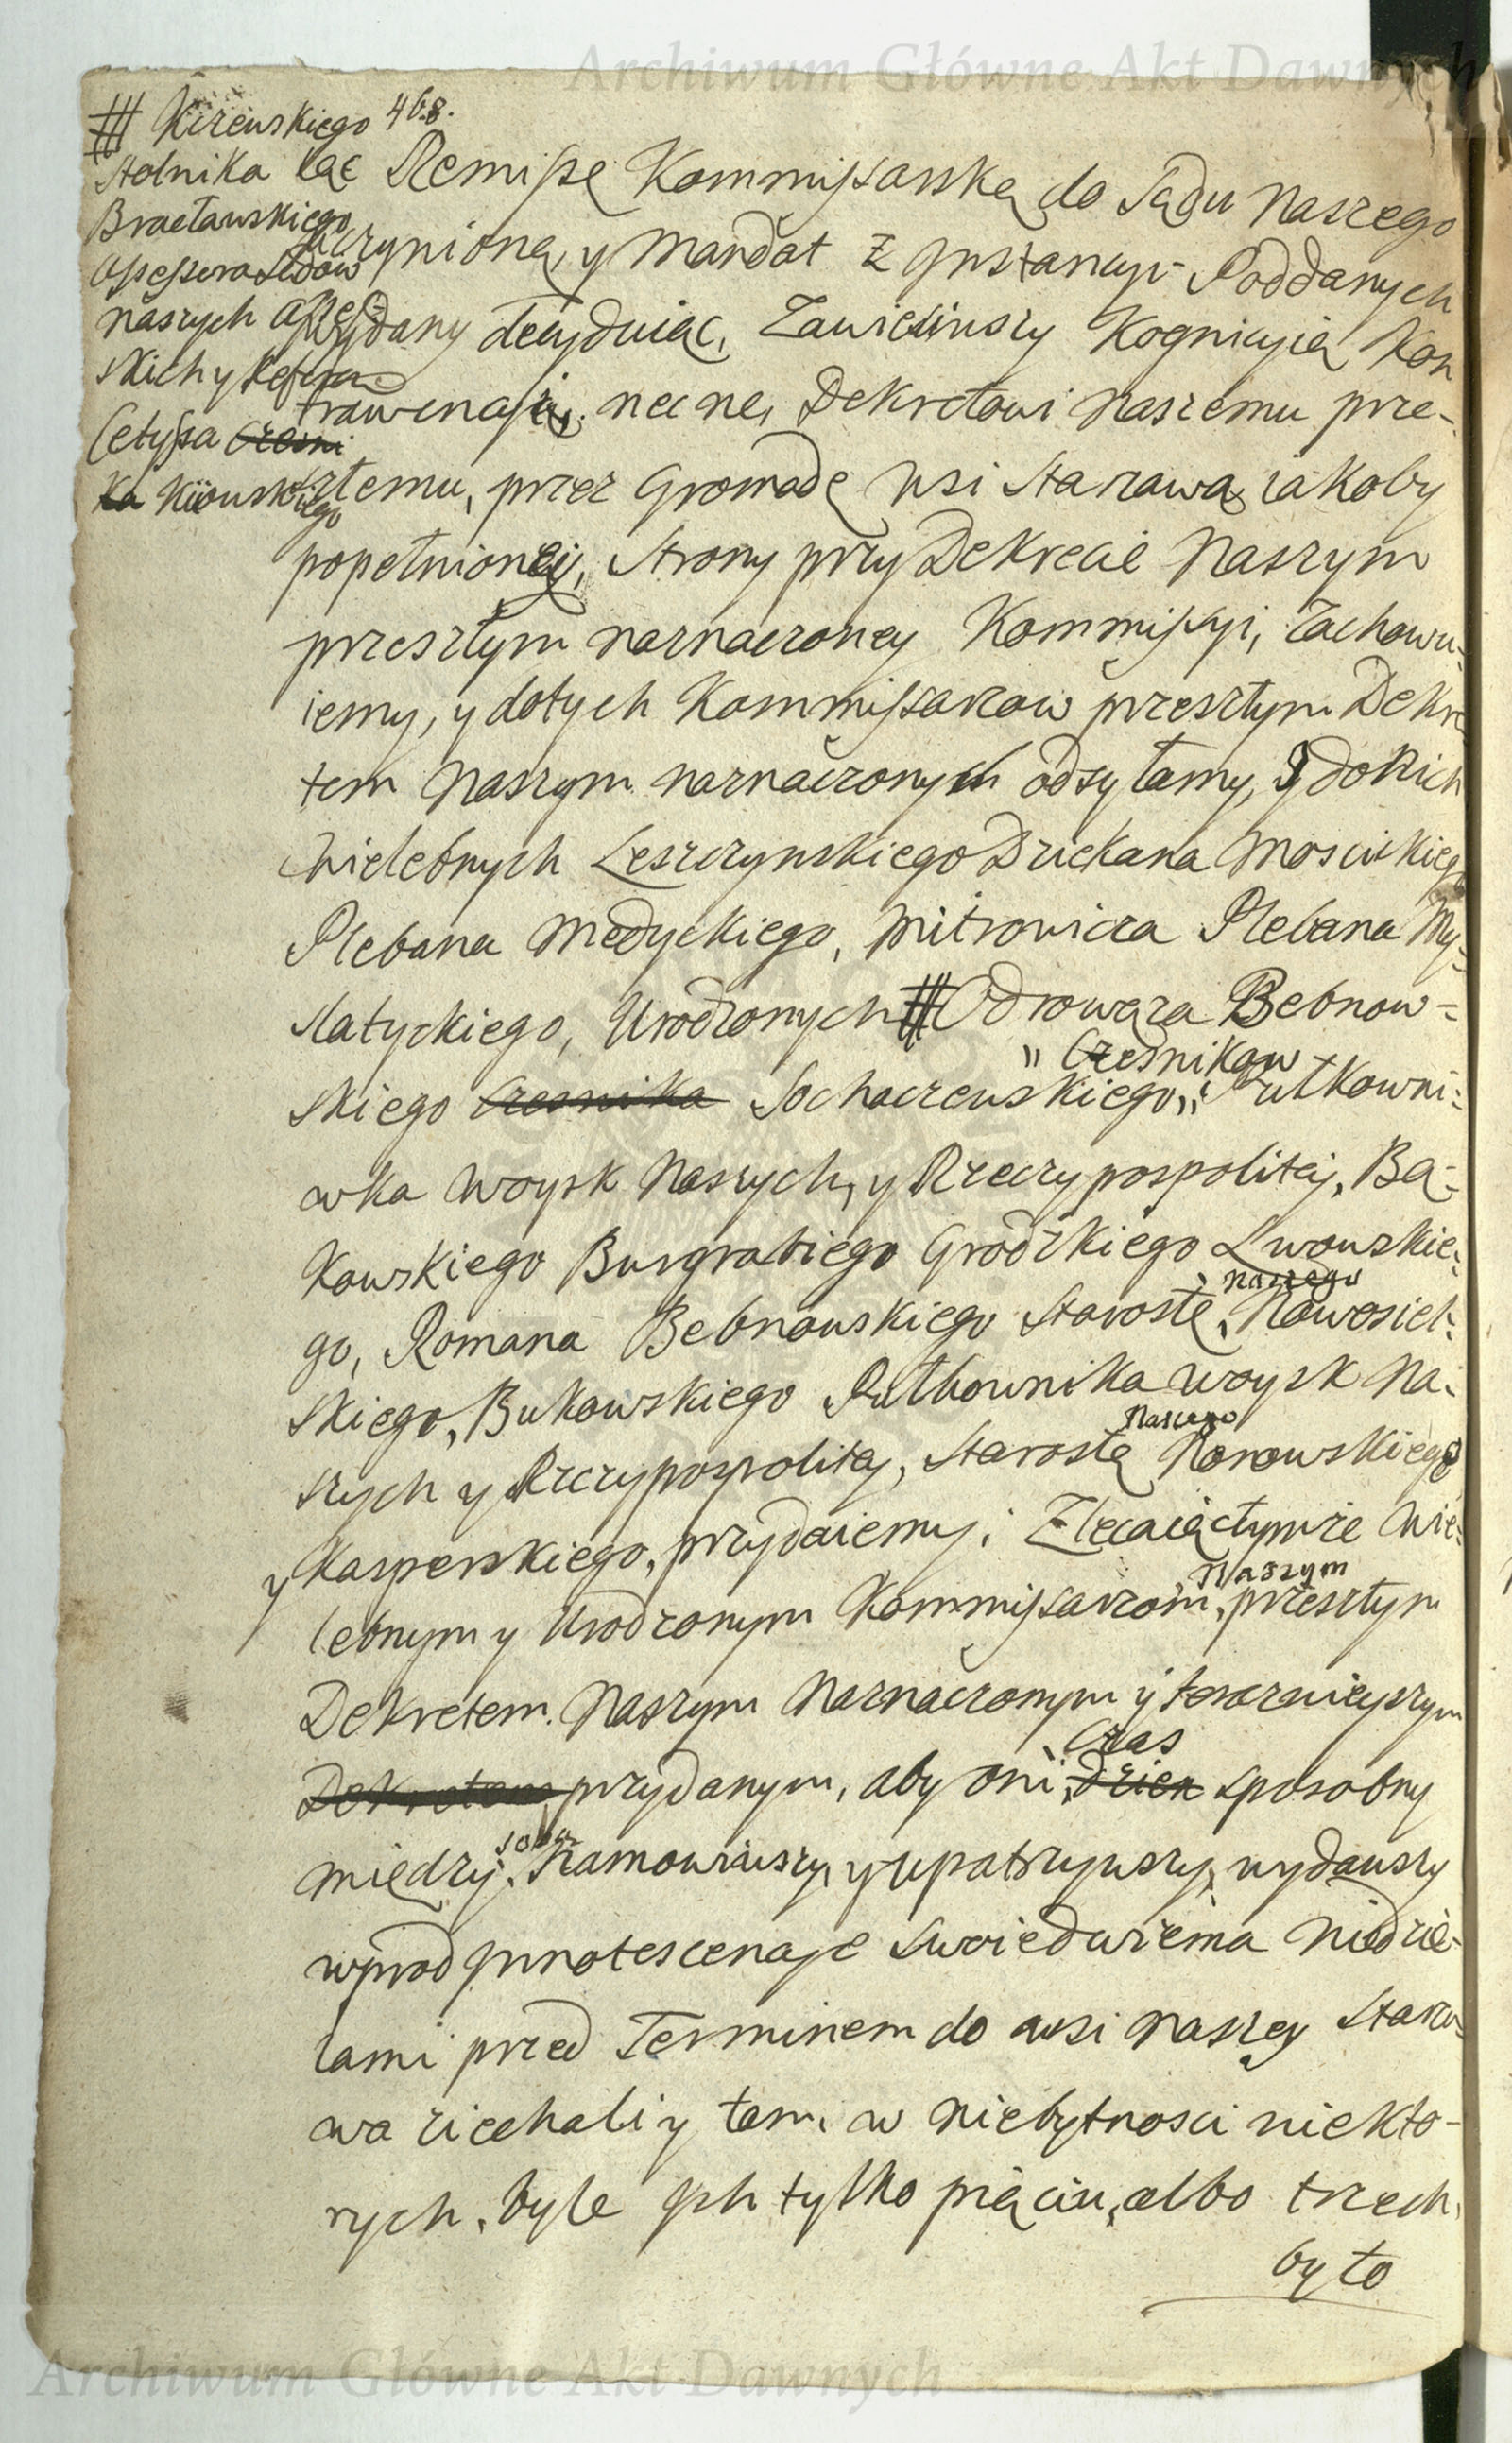 Archiwum Główne Akt Dawnych
# Kirenskiego 468.
Stolnika
Bracławskiego
Assessora Sądow
naszych Asses=
skich y Referen
Cetyssa Cresni
ka Kiiouskiego
iąc Remissę Kommissarską do Sądu Naszego
uczynioną, y Mandat z Jnstancyi Poddanych
wydany decyduiąc, Zawiesiwszy Kognicyią Kon
trawencyi, necne, Dekretowi Naszemu prze-
szłemu, przez Gromadę wsi Starawa, iakoby
popełnioney, Strony przy Dekrecie Naszym
przeszłym naznaczoney Kommissyi, Zachowu-
iemy, y do tych Kommissarzow przeszłym Dekre
tem Naszym naznaczonych odsyłamy, y do Nich
Wielebnych Leszczynskiego Dziekana Moscickiego
Plebana Medyckiego, Mitrowicza Plebana My-
slatyckiego, Urodzonych # Odrowąza Bebnow=
" Czesnikow
skiego Czesnika Sochaczewskiego," Pułkowni=
wka Woysk Naszych, y Rzeczypospolitey, Bą=
kowskiego Burgrabiego Grodzkiego Lwowskie=
Naszego
go, Romana Bebnowskiego Starostę, Nowosiel=
skiego, Bukowskiego Pułkownika Woysk Na=
Naszego
szych y Rzeczypospolitey, Starostę Norowskiego
y Kasperskiego, przydaiemy; Zlecaiąc tymże Wie=
Naszym
lebnym y Urodzonym Kommissarzom, przeszłym
Dekretem Naszym Naznaczonym y teraznieyszym
Czas
Dekretem przydanym, aby oni, dzien sposobny
sobą
między, Znamowiwszy, y upatrzywszy, wydawszy
wprod Jnnotescencyę swoię dwiema Niedzie-
lami przed Terminem do wsi Naszey Stara=
wa ziechali y tam w niebytnosci niekto-
rych, byle Jch tylko pięciu, albo trzech,
było
Archiwum Główne Akt Dawnych